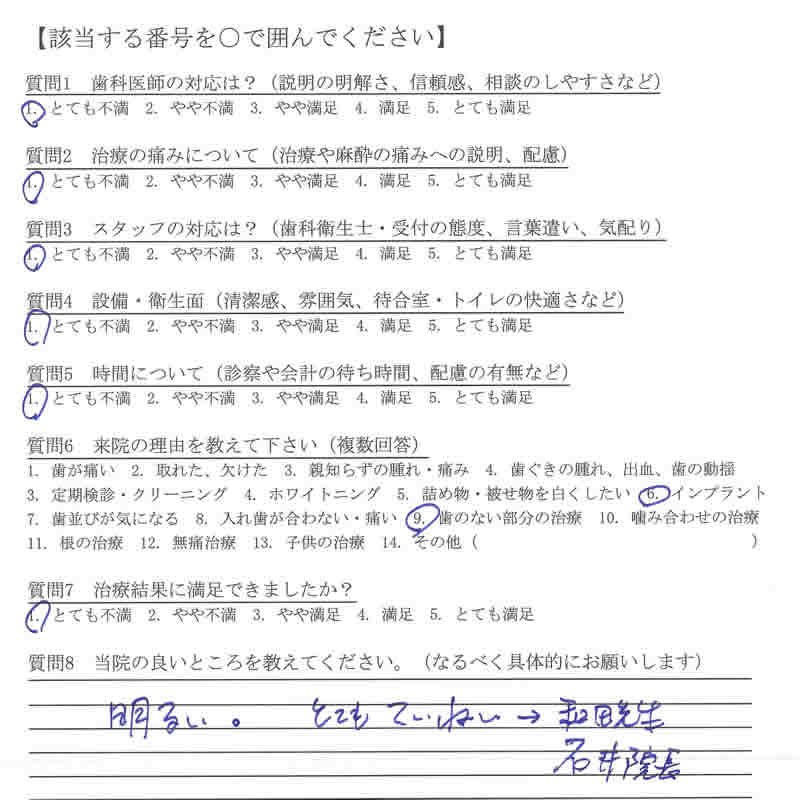 【該当する番号を〇で囲んでください】
質問1 歯科医師の対応は？（説明の明解さ、信頼感、相談のしやすさなど）
1. とても不満 2. やや不満 3. やや満足 4. 満足 5. とても満足
質問2 治療の痛みについて（治療や麻酔の痛みへの説明、配慮）
1. とても不満 2. やや不満 3. やや満足 4. 満足 5. とても満足
質問3 スタッフの対応は？（歯科衛生士・受付の態度、言葉遣い、気配り）
1. とても不満 2. やや不満 3. やや満足 4. 満足 5. とても満足
質問4 設備・衛生面（清潔感、雰囲気、待合室・トイレの快適さなど）
1. とても不満 2. やや不満 3. やや満足 4. 満足 5. とても満足
質問5 時間について（診察や会計の待ち時間、配慮の有無など）
1. とても不満 2. やや不満 3. やや満足 4. 満足 5. とても満足
質問6 来院の理由を教えて下さい（複数回答）
1. 歯が痛い 2. 取れた、欠けた 3. 親知らずの腫れ・痛み 4. 歯ぐきの腫れ、出血、歯の動揺
3. 定期検診・クリーニング 4. ホワイトニング 5. 詰め物・被せ物を白くしたい 6. インプラント
7. 歯並びが気になる 8. 入れ歯が合わない・痛い 9. 歯のない部分の治療 10. 噛み合わせの治療
11. 根の治療 12. 無痛治療 13. 子供の治療 14. その他（ ）
質問7 治療結果に満足できましたか？
1. とても不満 2. やや不満 3. やや満足 4. 満足 5. とても満足
質問8 当院の良いところを教えてください。（なるべく具体的にお願いします）
明るい。 とても ていねい→ 和田先生
石井院長